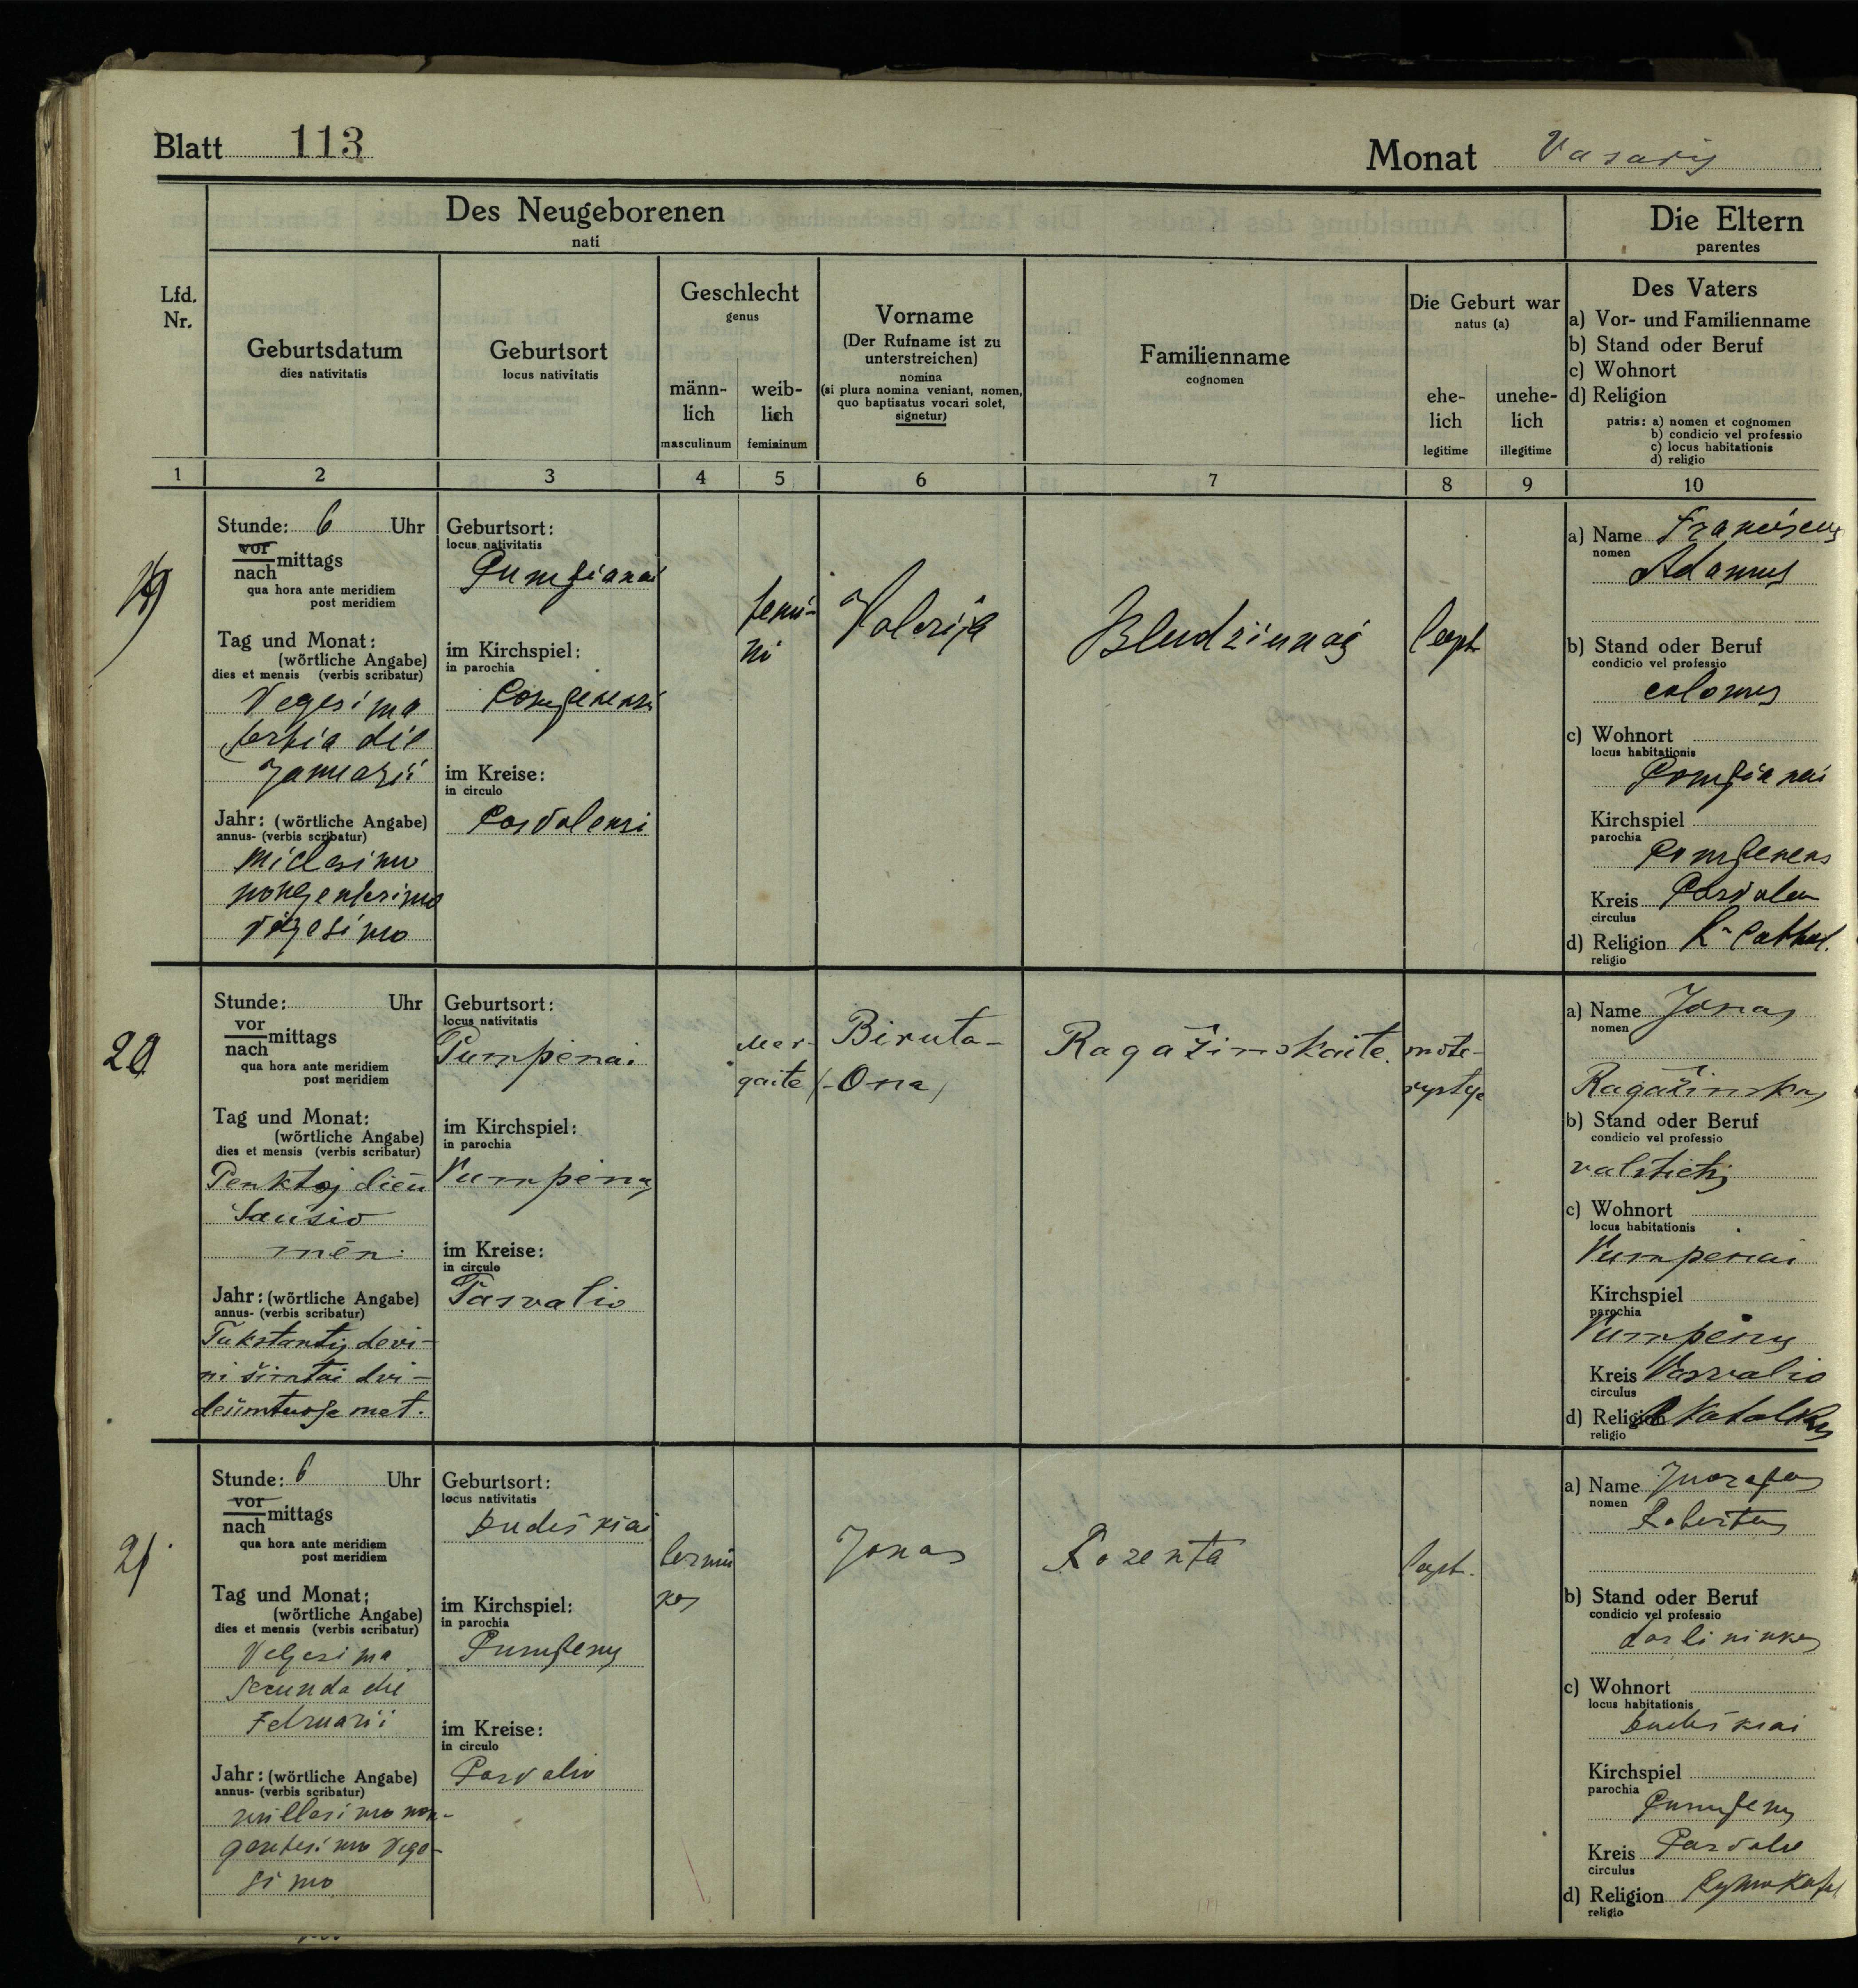 Blatt 113
Monat Vasaris
Des Neugeborenen
nati
Die Eltern
parentes
Lfd.
Nr.
Geburtsdatum
dies nativitatis
Geburtsort
locus nativitatis
Geschlecht
genus
männ-
lich
masculinum
weib-
lich
femininum
Vorname
(Der Rufname ist zu
unterstreichen)
nomina
(si plura nomina veniant, nomen,
quo baptisatus vocari solet,
signetur)
Familienname
cognomen
Die Geburt war
natus (a)
ehe-
lich
legitime
unehe-
lich
illegitime
Des Vaters
a) Vor- und Familienname
b) Stand oder Beruf
c) Wohnort
d) Religion
patris: a) nomen et cognomen
b) condicio vel professio
c) locus habitationis
d) religio
1 2 3 4 5 6 7 8 9 10
19
Stunde: 6 Uhr
vor
nach mittags
qua hora ante meridiem
post meridiem
Tag und Monat:
(wörtliche Angabe)
dies et mensis (verbis scribatur)
Vegesima
tertia die
Januarii
Jahr: (wörtliche Angabe)
annus- (verbis scribatur)
nongentesimo
Geburtsort:
locus nativitatis
im Kirchspiel:
in parochia
im Kreise:
in circulo
Posvolensi
femi-
ni
Valerija
a) Name Franciscus
nomen
Adamus
b) Stand oder Beruf
condicio vel professio
colonus
c) Wohnort
locus habitationis
Kirchspiel
parochia
Kreis
circulus
d) Religion R. Cathol.
religio
20
Stunde: Uhr
vor
nach mittags
qua hora ante meridiem
post meridiem
Tag und Monat:
(wörtliche Angabe)
dies et mensis (verbis scribatur)
Penktoj dien
Sausio
mėn.
Jahr: (wörtliche Angabe)
annus- (verbis scribatur)
Tukstantis devi-
ni šimtai dvi-
dešimtuose met.
Geburtsort:
locus nativitatis
Pumpėnai
im Kirchspiel:
in parochia
Pumpėnų
im Kreise:
in circulo
Pasvalio
Mer-
gaite
Biruta-
Ona
Ragažinskaite
mote-
rystėje
a) Name Jonas
nomen
Ragažinskas
b) Stand oder Beruf
condicio vel professio
valstietis
c) Wohnort
locus habitationis
Pumpenai
Kirchspiel
parochia
Pumpėnų
Kreis Pasvalio
circulus
d) Religion R Katalikų
religio
21
Stunde: 6 Uhr
vor
nach mittags
qua hora ante meridiem
post meridiem
Tag und Monat:
(wörtliche Angabe)
dies et mensis (verbis scribatur)
Vegesima
secunda die
Februarii
Jahr: (wörtliche Angabe)
annus- (verbis scribatur)
millesimo non-
gentesimo vege-
simo
Geburtsort:
locus nativitatis
im Kirchspiel:
in parochia
Pumpenų
im Kreise:
in circulo
Posvalio
berniu
kas
Jonas
Rozenta
legit.
a) Name Juozapas
nomen
b) Stand oder Beruf
condicio vel professio
c) Wohnort
locus habitationis
Kirchspiel
parochia
Pumpenų
Kreis
circulus
d) Religion
religio